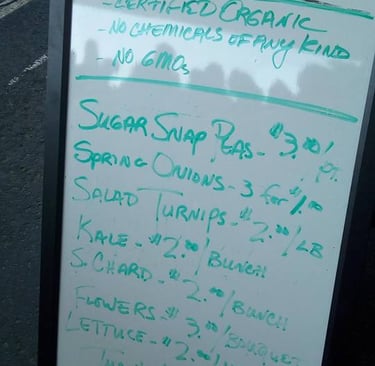 - CERTIFIED ORGANIC
- NO CHEMICALS OF ANY KIND
- NO GMOs
SUGAR SNAP PEAS - $3.00/PT.
SPRING ONIONS - 3 for $1.00
SALAD TURNIPS - $2.00/LB
KALE - $2.00/BUNCH
S. CHARD - $2.00/BUNCH
FLOWERS - $3.00/BOUQUET
LETTUCE - $2.00/